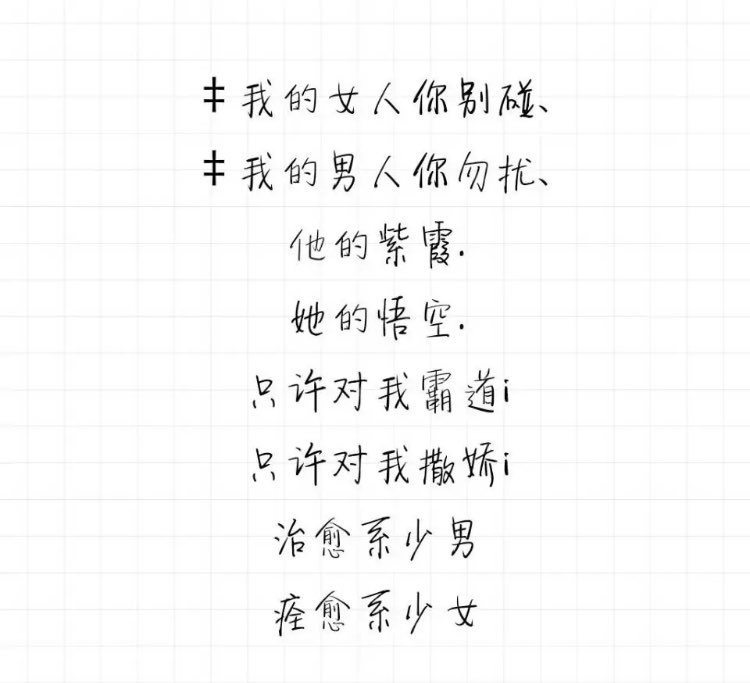 ‡我的女人你别碰、
‡我的男人你勿扰、
他的紫霞.
她的悟空.
只许对我霸道i
只许对我撒娇i
治愈系少男
痊愈系少女